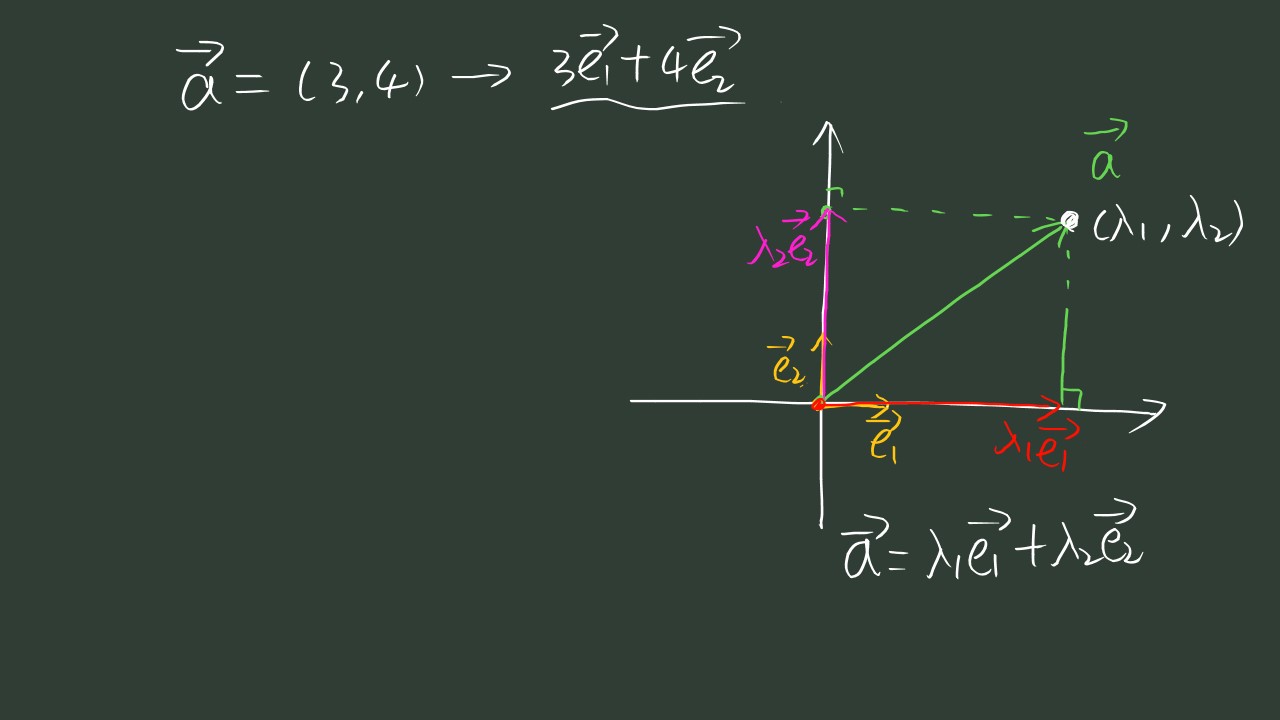 $\vec{a} = (3,4) \rightarrow 3\vec{e_1}+4\vec{e_2}$
$\vec{a}$
$(\lambda_1, \lambda_2)$
$\lambda_2\vec{e_2}$
$\vec{e_2}$
$\vec{e_1}$
$\lambda_1\vec{e_1}$
$\vec{a} = \lambda_1\vec{e_1}+\lambda_2\vec{e_2}$